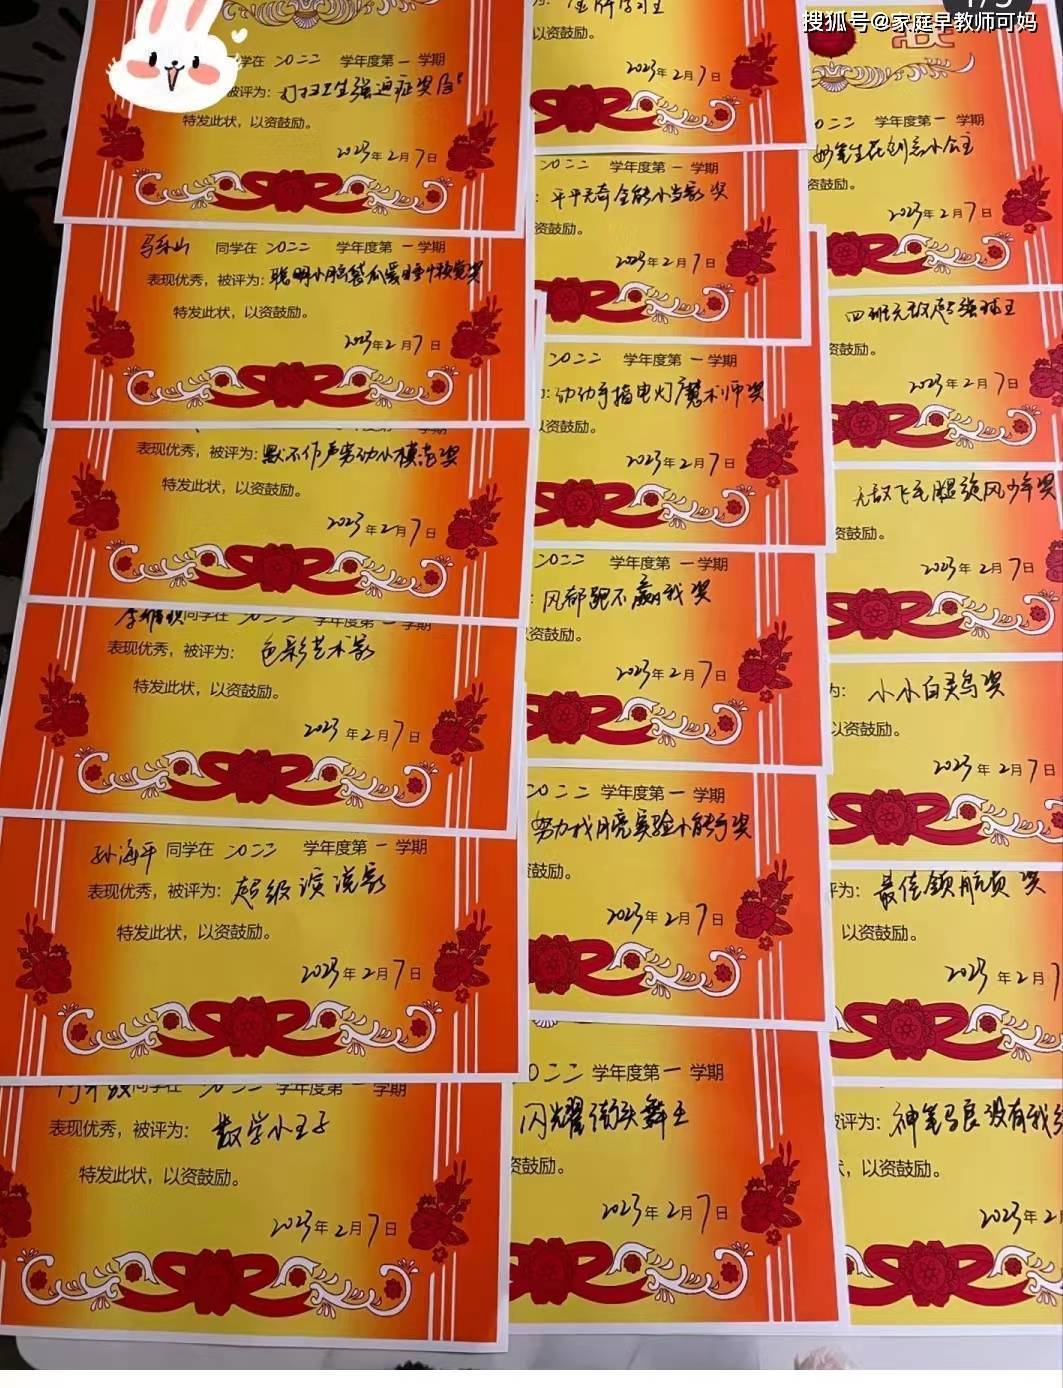 搜狐号@家庭早教师可妈
学在 二〇二二 学年度第一学期
被评为:打扫卫生强迫症奖
特发此状,以资鼓励。
2023年2月7日
同学在 二〇二二 学年度第一学期
表现优秀,被评为:聪明小脑袋瓜爱睡午觉奖
特发此状,以资鼓励。
2023年2月7日
表现优秀,被评为:默不作声劳动小模范奖
特发此状,以资鼓励。
2023年2月7日
同学在 二〇二二 学年度第一学期
表现优秀,被评为: 色彩艺术家
特发此状,以资鼓励。
2023年2月7日
孙海平 同学在 二〇二二 学年度第一学期
表现优秀,被评为:超级演说家
特发此状,以资鼓励。
2023年2月7日
同学在 二〇二二 学年度第一学期
表现优秀,被评为: 数学小王子
特发此状,以资鼓励。
2023年2月7日
金牌学习王
以资鼓励。
2023年2月7日
二〇二二 学年度第一学期
平平无奇全能小当家奖
资鼓励。
2023年2月7日
二〇二二 学年度第一学期
动动手指电灯魔术师奖
以资鼓励。
2023年2月7日
二〇二二 学年度第一学期
风都跑不赢我奖
资鼓励。
2023年2月7日
〇二二 学年度第一学期
努力找月亮实验小能手奖
鼓励。
2023年2月7日
〇二二 学年度第一学期
闪耀街头舞王
资鼓励。
2023年2月7日
状
〇二二 学年度第一学期
妙笔生花创意小公主
资鼓励。
2023年2月7日
四班无敌超强球王
资鼓励。
2023年2月7日
无敌飞毛腿旋风少年奖
资鼓励。
2023年2月7日
为: 小小百灵鸟奖
以资鼓励。
2023年2月7日
评为: 最佳领航员奖
以资鼓励。
2023年2月7
被评为:神笔马良没有我
以资鼓励。
2023年2